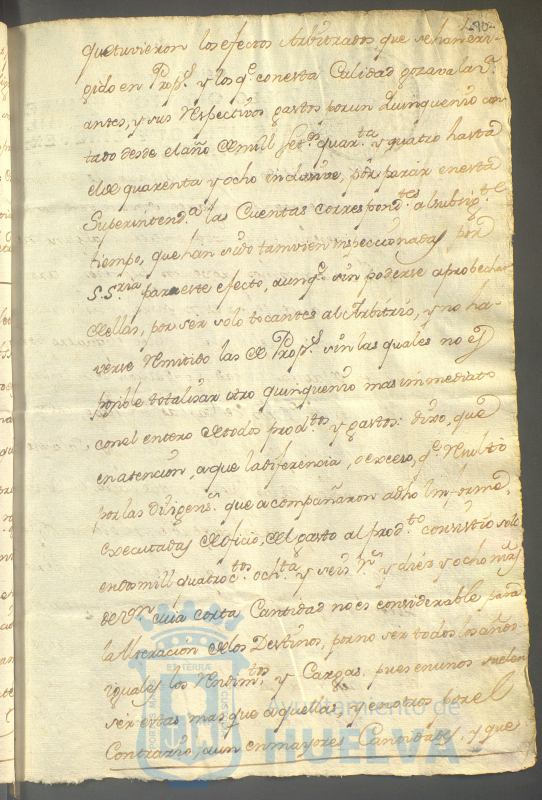 que tuvieron los efectos Arbitrados que se han exi-
gido en Prop.s y los q.e con esta Calidad gozava la C.
antes, y sus respectivos gastos por un Quinquenio con
tado desde el año de mill set.s quar.ta y quatro hasta
el de quarenta y ocho inclusive, por parar en esta
Superintend.a las Cuentas correspond.tes al subsig.te
tiempo, que han sido tamvien inspeccionadas por
S.S.ria para este efecto, aunq.e sin poderse aprobechar
de ellas, por ser solo tocantes al Arbitrio, y no ha-
verse remitido las de Prop.s sin las quales no es
posible totalisar otro quinquenio mas inmediato
con el entero de todos prod.tos y gastos: dixo, que
en atencion, a que la diferencia, o exceso, q.e resultó
por las diligen.s que acompañaron a dho Informe,
executadas de oficio, del gasto al prod.to consistio solo
en dos mill quatroc.tos och.ta y seis r.s y diez y ocho mrs
de v.n cuia corta Cantidad no es considerable para
la Alteracion de los Destinos, por no ser todos los años
iguales los rendim.tos y Cargas, pues en unos suelen
ser estas mas que aquellas, y en otros por el
Contrario, aun en mayores Cantidades, y que
Ayuntamiento de
HUELVA